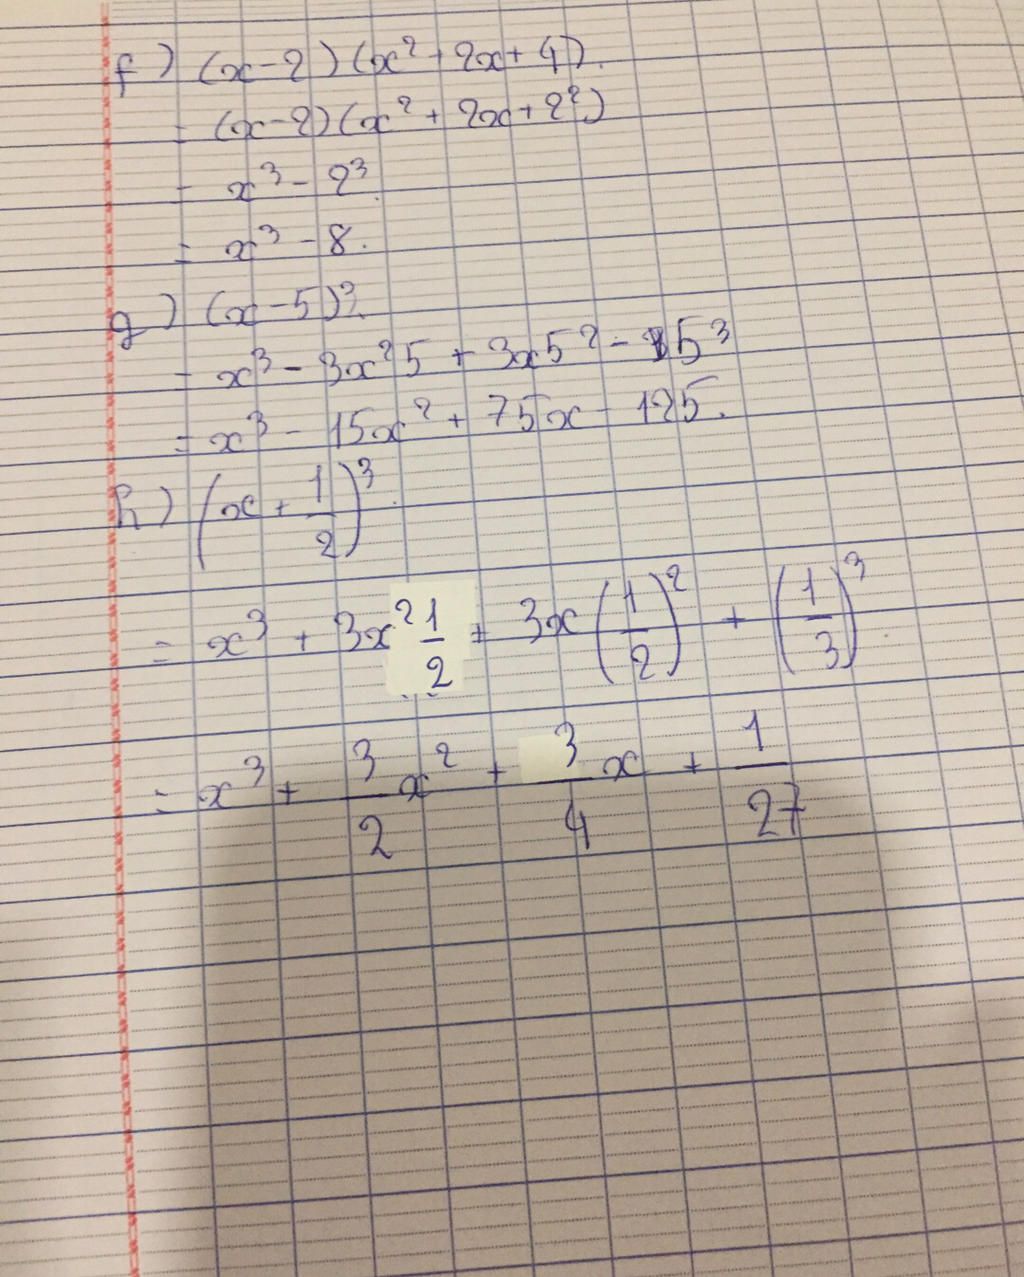 f) (x-2)(x²+2x+4).
= (x-2)(x²+2x+2²)
= x³-2³.
= x³-8.
g) (x-5)³.
= x³-3x²5+3x5²-5³
= x³-15x²+75x-125.
h) (x+1/2)³.
= x³+3x²1/2+3x(1/2)²+(1/3)³
= x³+3/2x²+3/4x+1/27